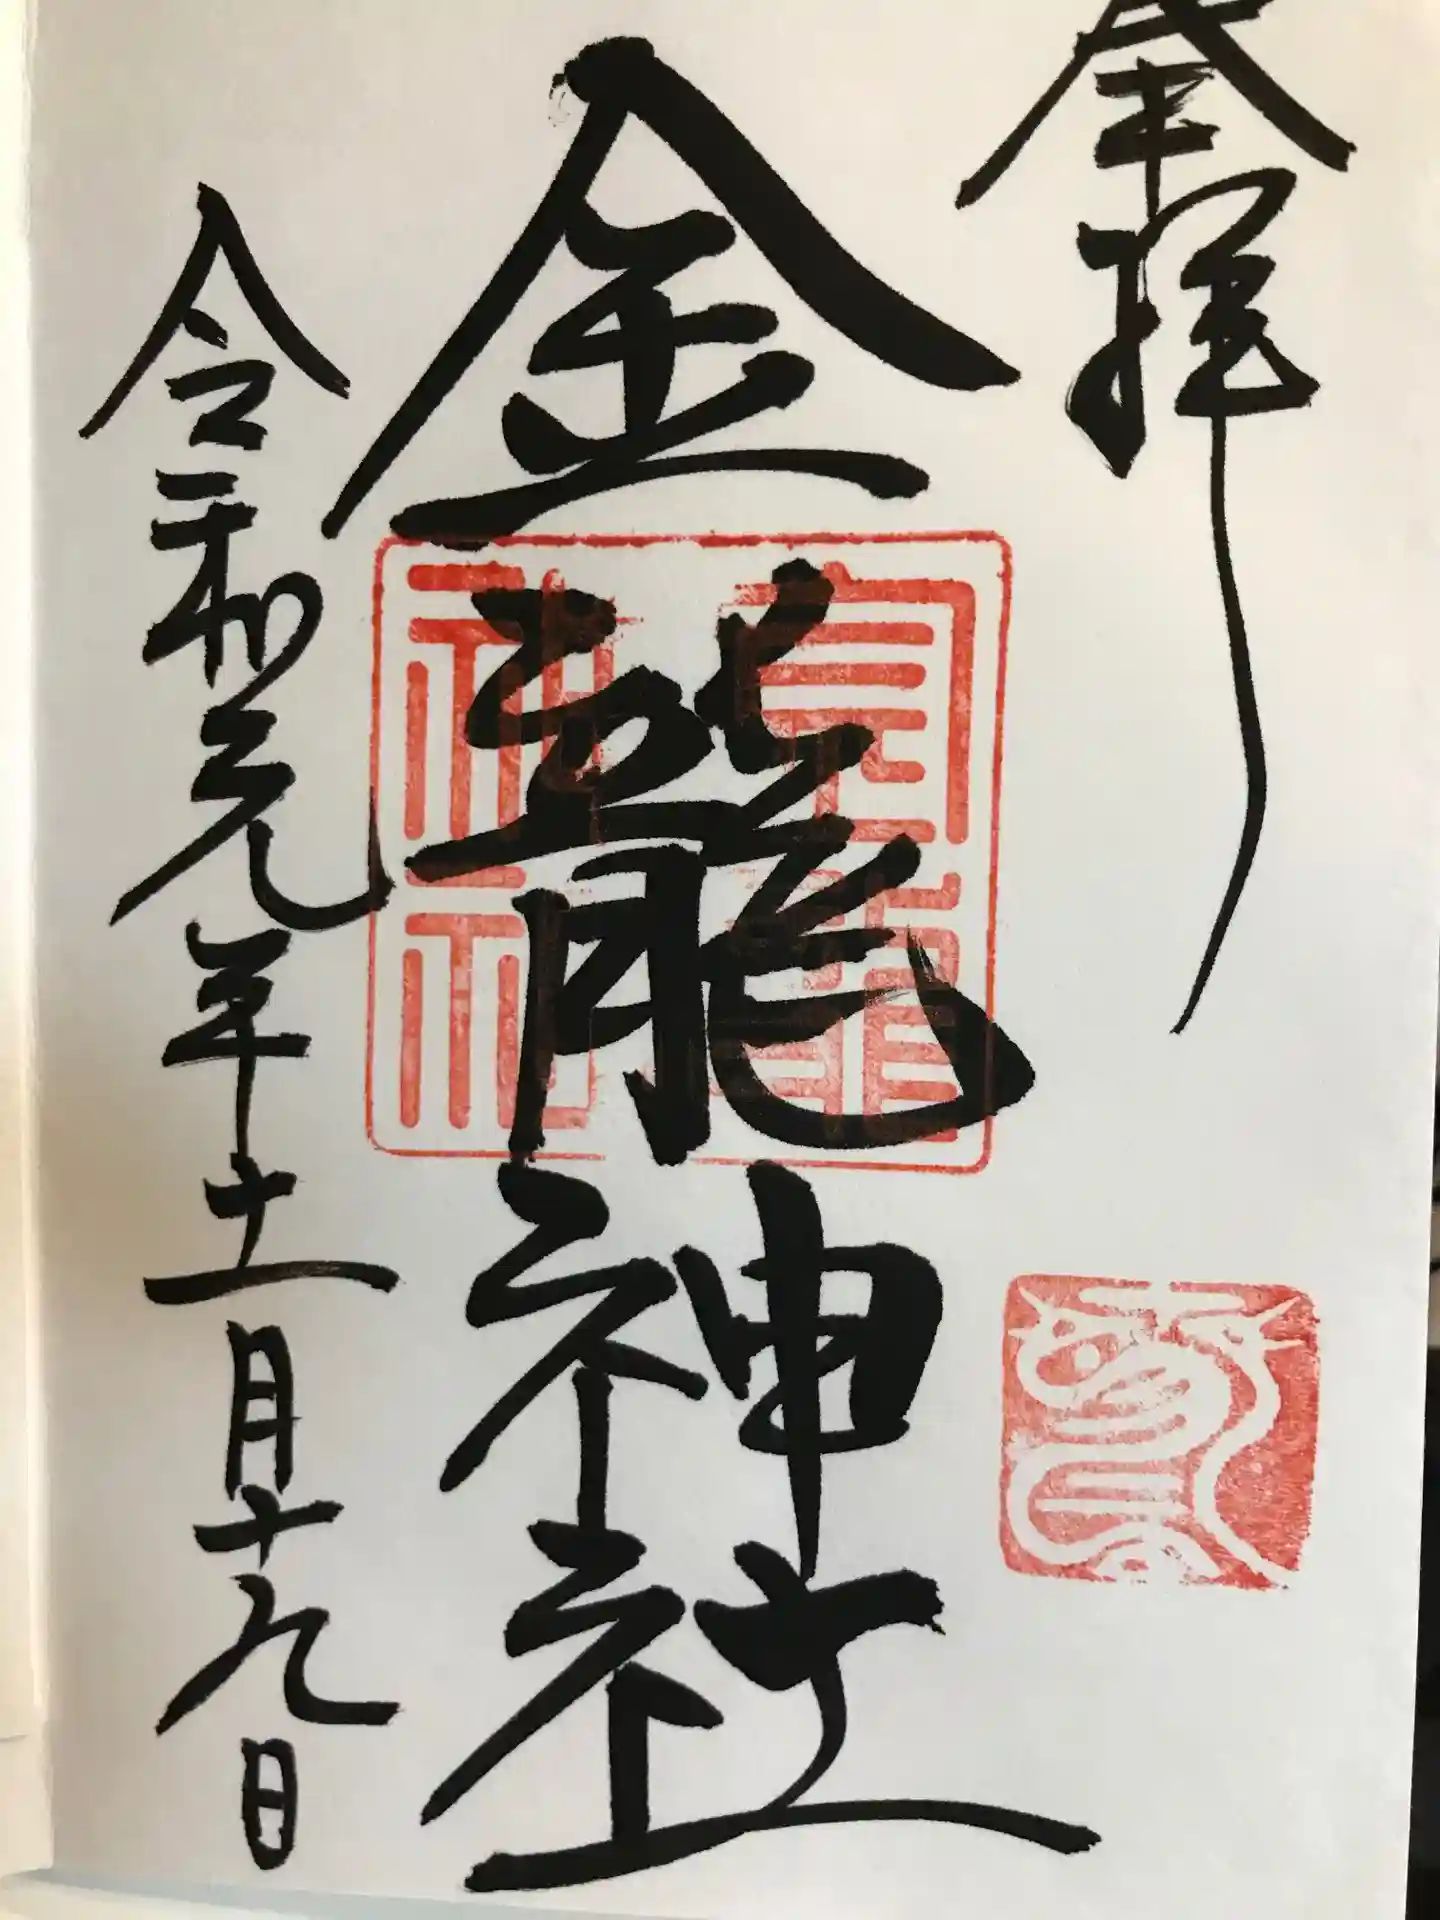 奉拝
金龍神社
令和元年十一月十九日